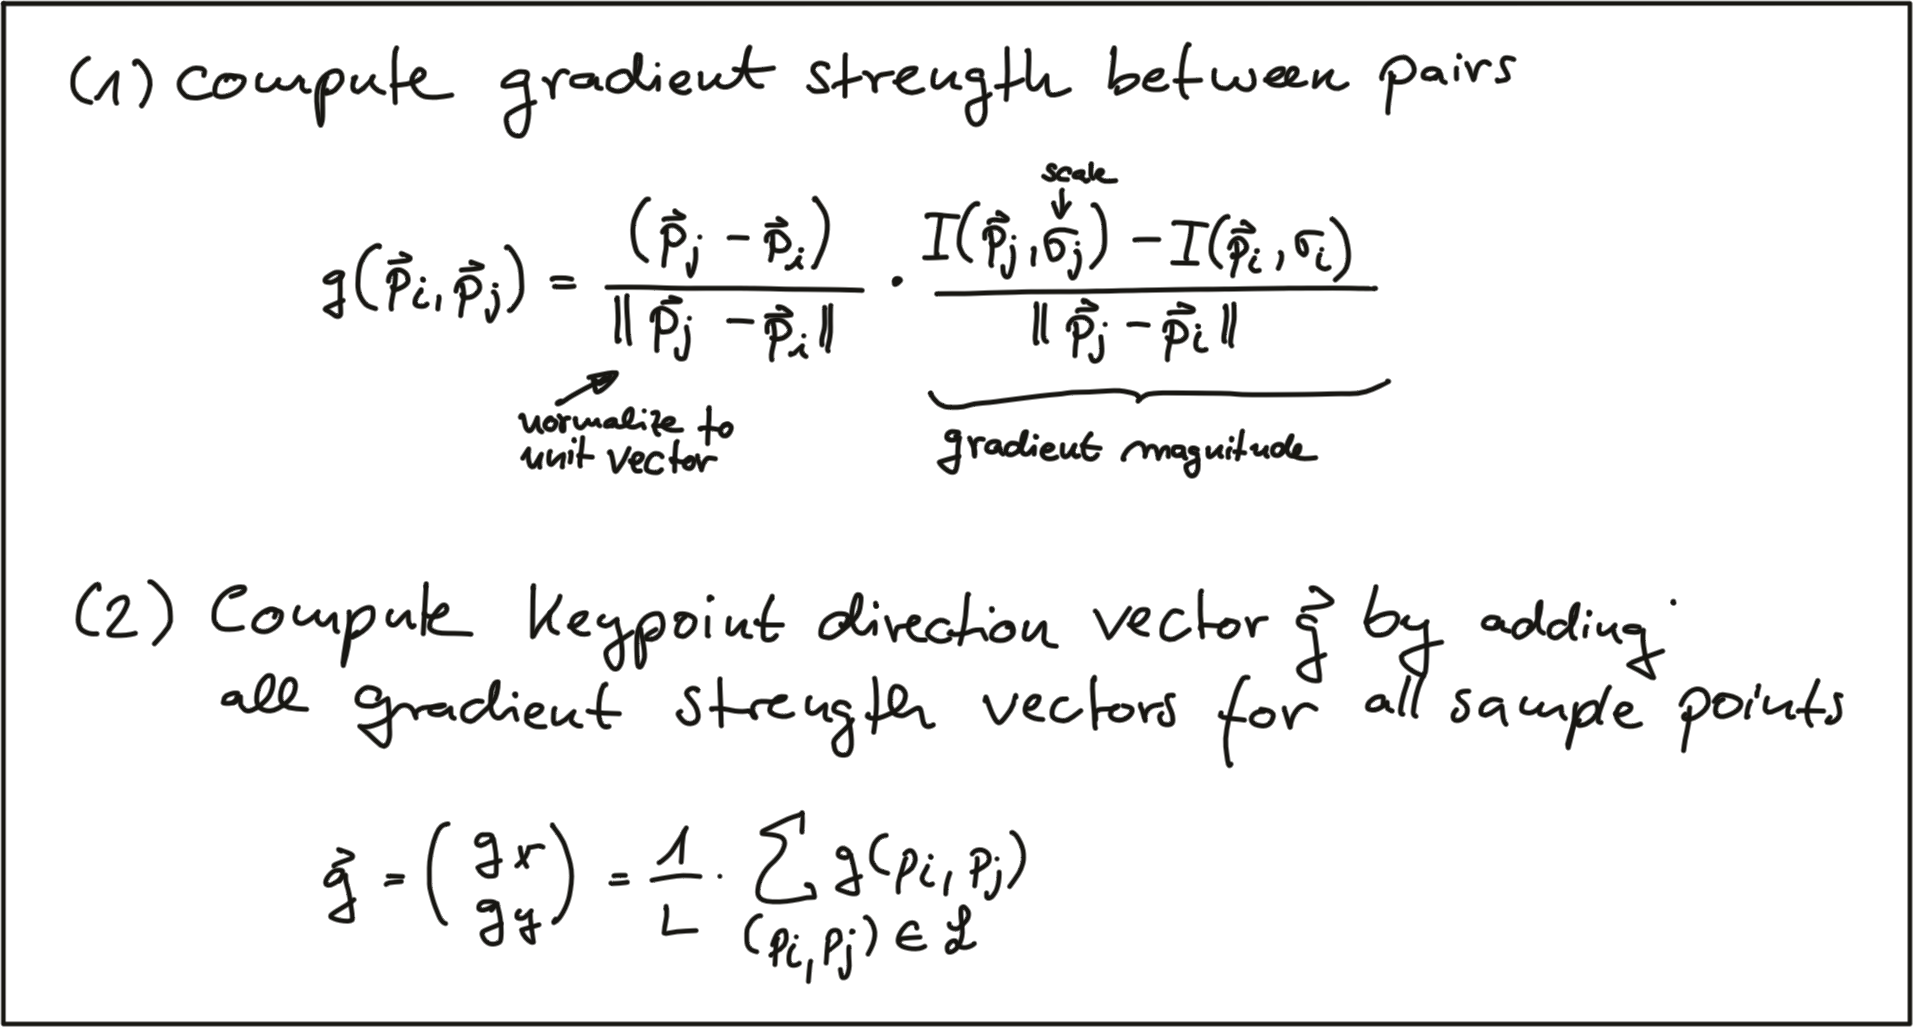 (1) compute gradient strength between pairs
scale
g(p⃗i, p⃗j) = (p⃗j − p⃗i) / ‖p⃗j − p⃗i‖ · I(p⃗j, σj) − I(p⃗i, σi) / ‖p⃗j − p⃗i‖
normalize to
unit vector
gradient magnitude
(2) Compute Keypoint direction vector g⃗ by adding
all gradient strength vectors for all sample points
g⃗ = (gx gy) = 1/L · ∑ g(pi, pj)
(pi, pj) ∈ ℒ